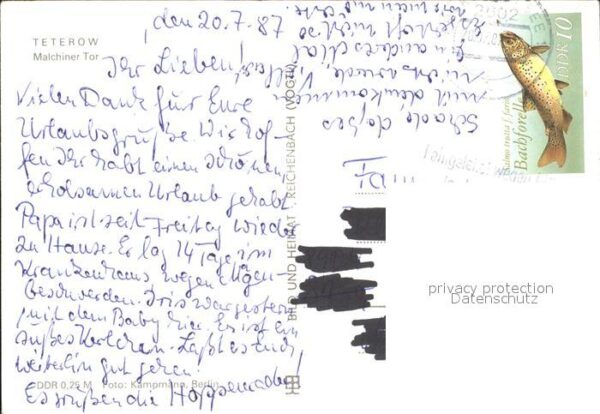 TETEROW
Malchiner Tor
, den 20.7.87
Ihr Lieben!
Vielen Dank für Eure
Urlaubsgrüße. Wir hof-
fen Ihr habt einen schönen
erholsamen Urlaub gehabt.
Papa ist seit Freitag wieder
zu Hause. Er lag 14 Tage im
Krankenhaus wegen Magen-
beschwerden. Iris war gestern
mit dem Baby hier. Es ist ein
süßes Kerlchen. Laßt es euch
weiterhin gut gehen!
Es grüßen die
DDR 0,25 M Foto: Kampmann, Berlin
BILD UND HEIMAT REICHENBACH (VOGTL)
Schade daß es
mit dem kommen
nichts wurde.
Ein anderes Mal
DDR 10
Bachforelle
Salmo trutta f. fario
privacy protection
Datenschutz